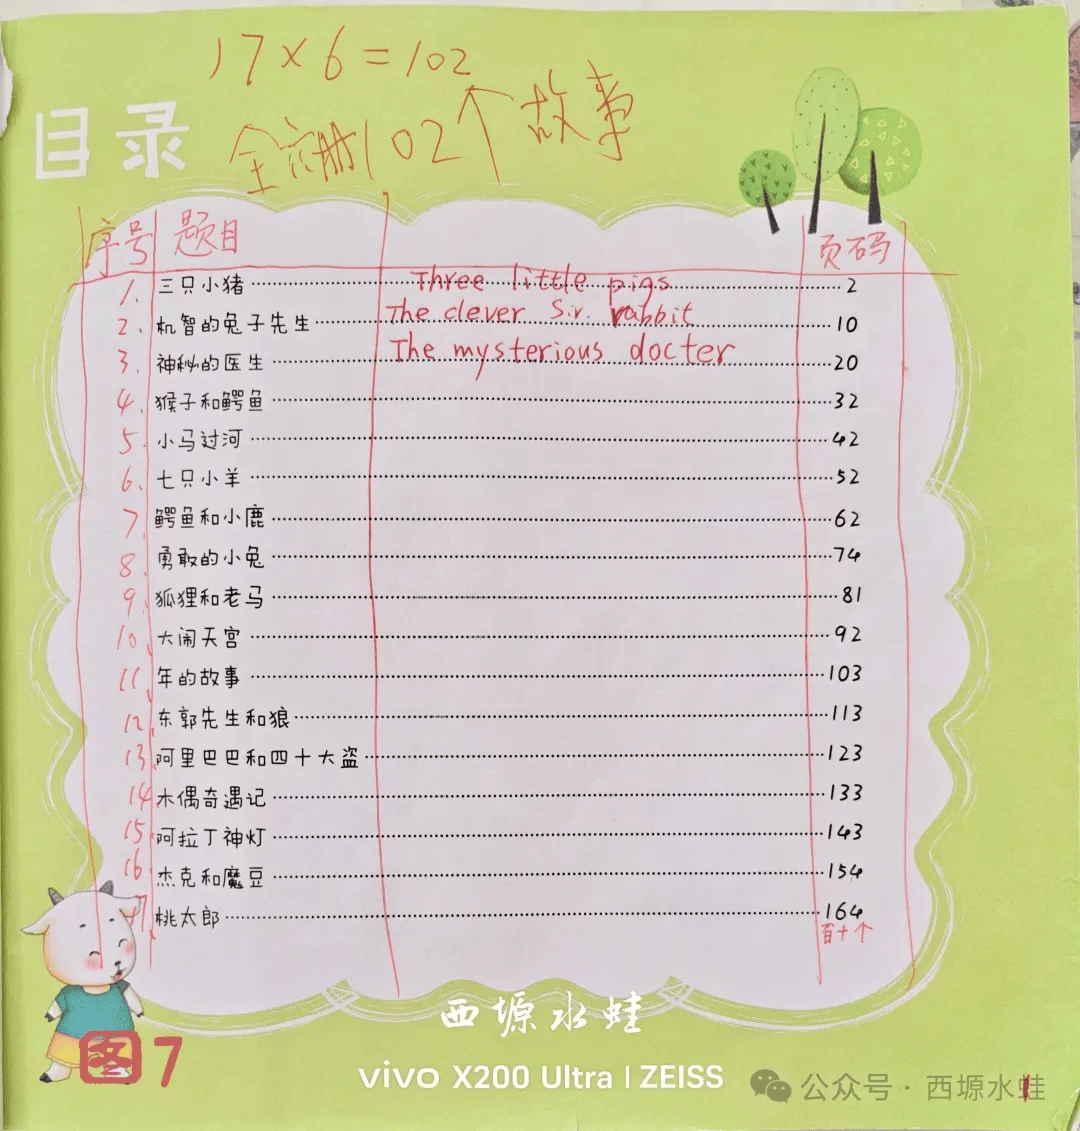 17×6=102
目录
全六册102个故事
序号 题目 页码
1. 三只小猪 Three little pigs 2
2. 机智的兔子先生 The clever Sir. rabbit 10
3. 神秘的医生 The mysterious docter 20
4. 猴子和鳄鱼 32
5. 小马过河 42
6. 七只小羊 52
7. 鳄鱼和小鹿 62
8. 勇敢的小兔 74
9. 狐狸和老马 81
10. 大闹天宫 92
11. 年的故事 103
12. 东郭先生和狼 113
13. 阿里巴巴和四十大盗 123
14. 木偶奇遇记 133
15. 阿拉丁神灯 143
16. 杰克和魔豆 154
17. 桃太郎 164
百十个
西塬水蛙
图7
vivo X200 Ultra | ZEISS
公众号 · 西塬水蛙